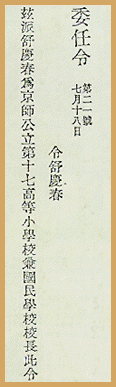 委任令
第二一號
七月十八日
令舒慶春
玆派舒慶春爲京師公立第十七高等小學校兼國民學校校長此令